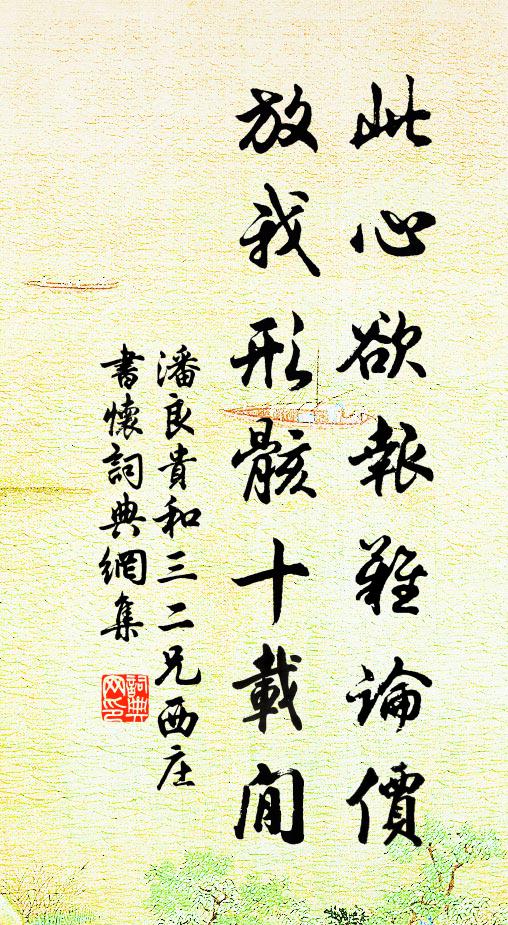 此心欲報難論價
放我形骸十載閒
潘良貴和三二兄西庄
書懷詞典網集
詞典网印